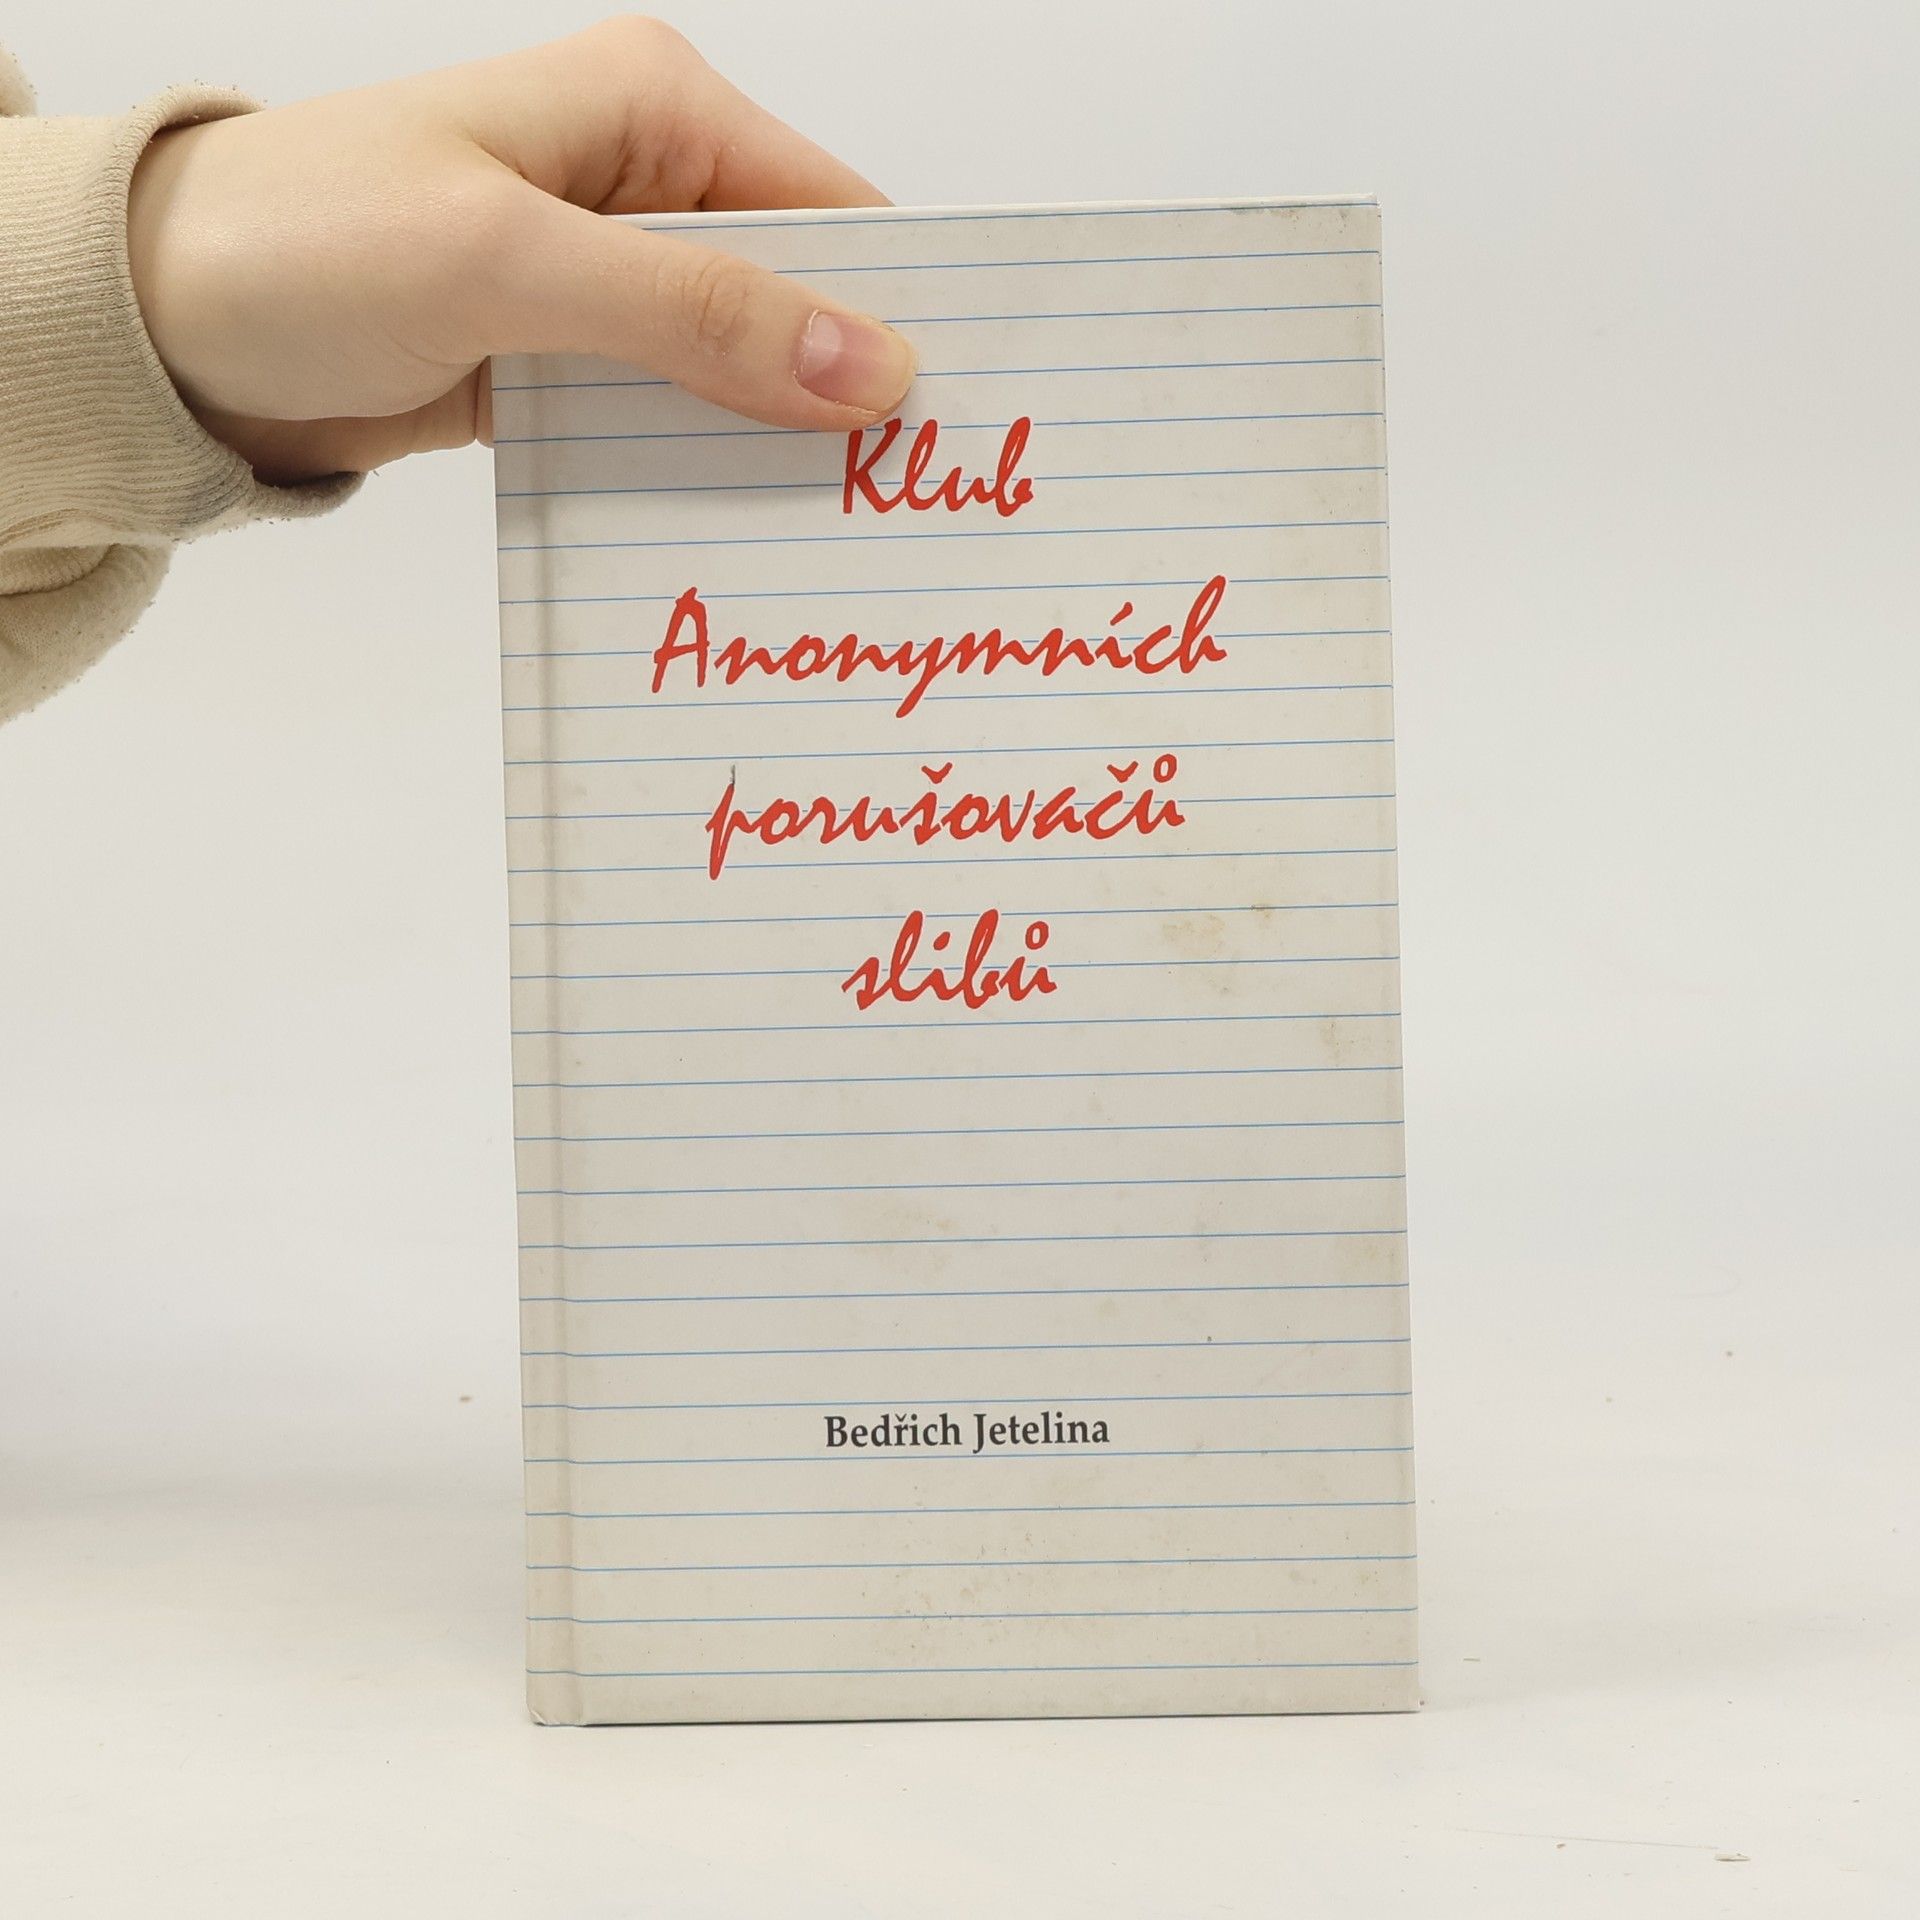 Klub
Anonymních
porušovačů
slibů
Bedřich Jetelina